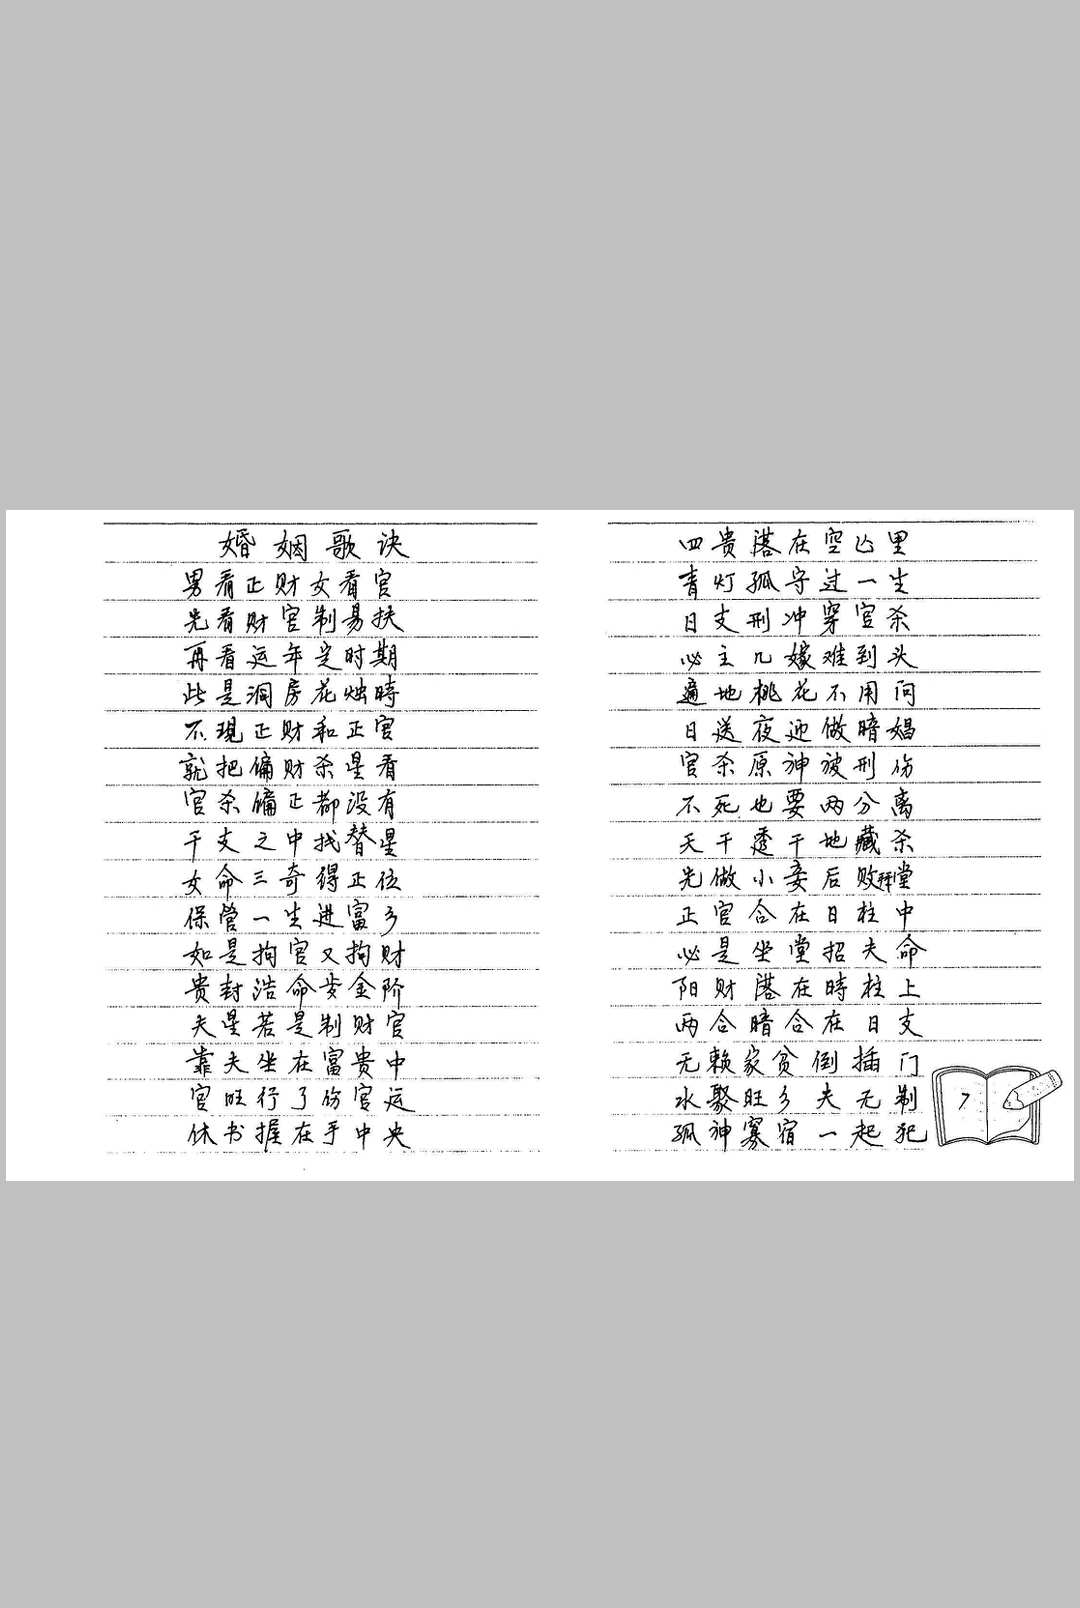 婚姻歌诀
男看正财女看官
先看财官制易扶
再看运年定时期
此是洞房花烛時
不现正财和正官
就把偏财杀星看
官杀偏正都没有
干支之中找替星
女命三奇得正位
保管一生进富乡
如是拘官又拘财
贵封浩命步金阶
夫星若是制财官
靠夫坐在富贵中
官旺行了伤官运
休书握在手中央
四贵落在空亡里
青灯孤守过一生
日支刑冲穿官杀
必主几嫁难到头
遍地桃花不用问
日送夜迎做暗娼
官杀原神被刑伤
不死也要两分离
天干透干地藏杀
先做小妾后败拜堂
正官合在日柱中
必是坐堂招夫命
阳财落在時柱上
两合暗合在日支
无赖家贫倒插门
水聚旺乡夫无制
孤神寡宿一起犯
7